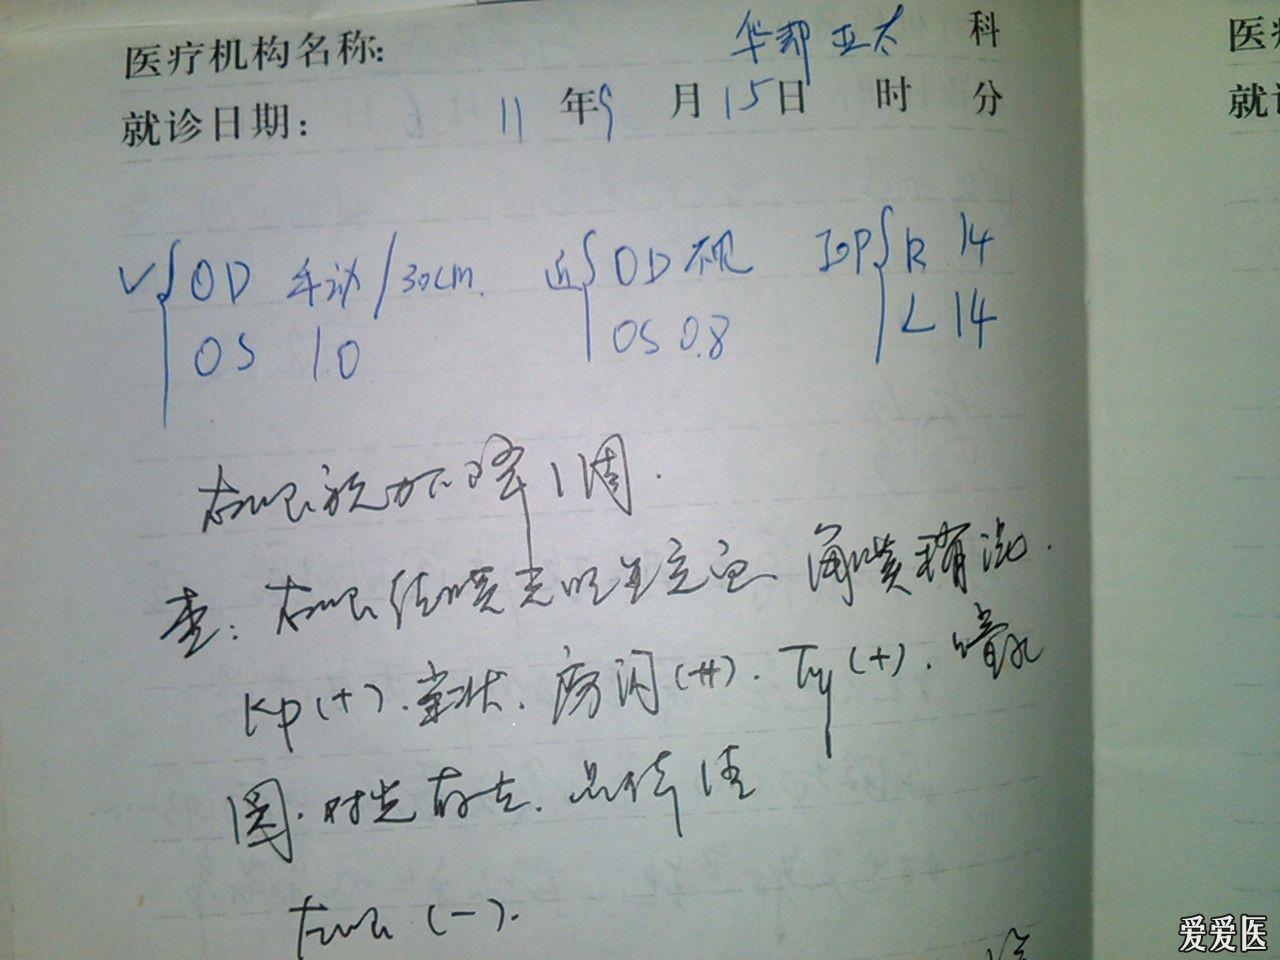 医疗机构名称: 华邦亚太 科
就诊日期: 11 年 9 月 15 日 时 分
V OD 手动/30cm 近 OD 不见 IOP R 14
OS 1.0 OS 0.8 L 14
右眼视力下降1周.
查: 右眼结膜无明显充血 角膜
Kp(+). 房闪(++). Ty(+). 瞳孔
圆. 对光存在. 晶体
左眼(-).
医疗
就诊
爱爱医